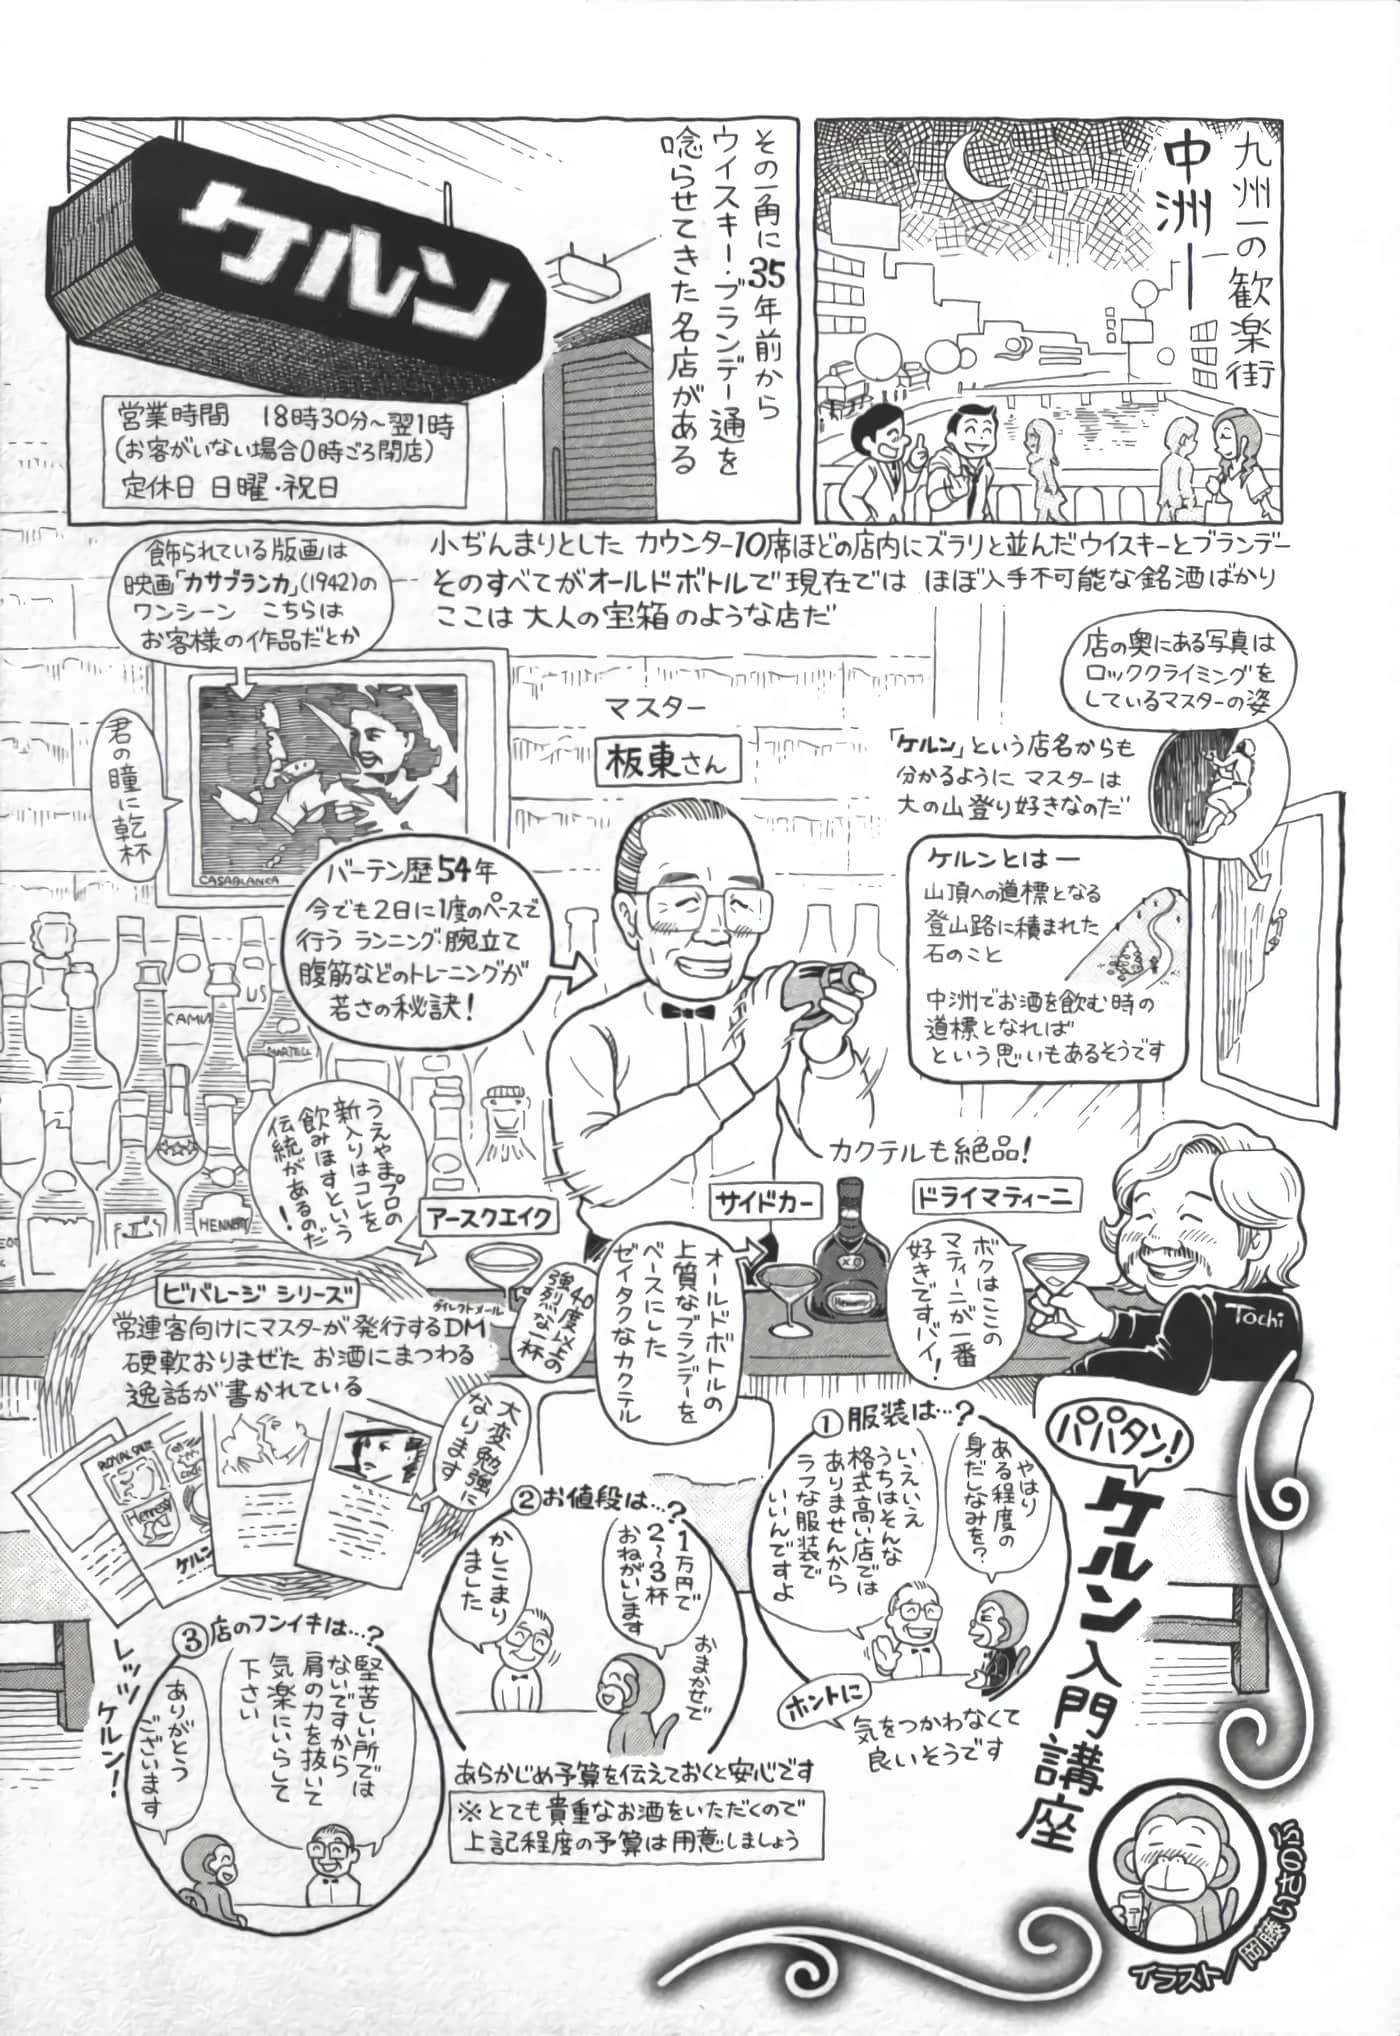 九州一の歓楽街
中洲ー
その一角に35年前から
ウイスキー・ブランデー通を
唸らせてきた名店がある
ケルン
営業時間 18時30分〜翌1時
(お客がいない場合0時ごろ閉店)
定休日 日曜・祝日
小ぢんまりとした カウンター10席ほどの店内にズラリと並んだウイスキーとブランデー
そのすべてがオールドボトルで現在では ほぼ入手不可能な銘酒ばかり
ここは大人の宝箱のような店だ
飾られている版画は
映画「カサブランカ」(1942)の
ワンシーン こちらは
お客様の作品だとか
君の瞳に乾杯
CASABLANCA
マスター
板東さん
店の奥にある写真は
ロッククライミングを
しているマスターの姿
「ケルン」という店名からも
分かるように マスターは
大の山登り好きなのだ
ケルンとはー
山頂への道標となる
登山路に積まれた
石のこと
中洲でお酒を飲む時の
道標となれば
という思いもあるそうです
バーテン歴54年
今でも2日に1度のペースで
行う ランニング・腕立て
腹筋などのトレーニングが
若さの秘訣!
CAMU
US
MARTELL
HENNESSY
カクテルも絶品!
ドライマティーニ
ボクはここの
マティーニが一番
好きですバイ!
Tochi
サイドカー
オールドボトルの
上質なブランデーを
ベースにした
ゼイタクなカクテル
XO
Hennessy
アースクエイク
うえやまプロの
新入りはコレを
飲みほすという
伝統があるのだ!
40度以上の
強烈な一杯
ビバレージ シリーズ
常連客向けにマスターが発行するDM
ダイレクトメール
硬軟おりまぜた お酒にまつわる
逸話が書かれている
大変勉強に
なります
Hennessy
ケルン
パパタン!
ケルン入門講座
①服装は…?
やはり
ある程度の
身だしなみを?
いえいえ
うちはそんな
格式高い店では
ありませんから
ラフな服装で
いいんですよ
ホントに
気をつかわなくて
良いそうです
②お値段は…?
1万円で
2〜3杯
おねがいします
おまかせで
かしこまり
ました
あらかじめ予算を伝えておくと安心です
※とても貴重なお酒をいただくので
上記程度の予算は用意しましょう
③店のフンイキは…?
堅苦しい所では
ないですから
肩の力を抜いて
気楽にいらして
下さい
ありがとう
ございます
レッツ ケルン!
イラスト/岡藤じのれい